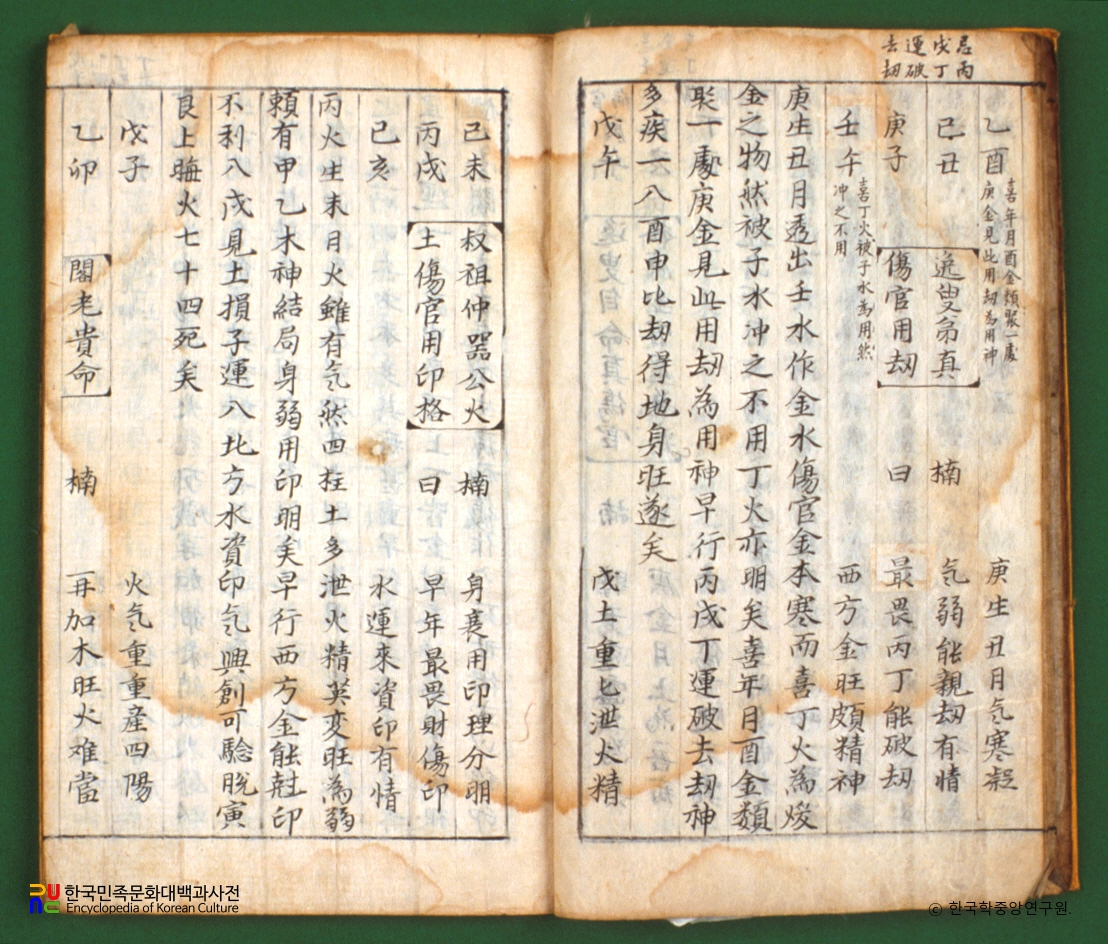 忌丙
戊丁
運破
去刼
乙酉
喜年月酉金類聚一處
庚金見此用刼為用神
庚生丑月气寒凝
己丑
逸叟弟真
楠
气弱能親刼有情
庚子
傷官用刼
曰
最畏丙丁能破刼
壬午
喜丁火被子水為用然
冲之不用
西方金旺頗精神
庚生丑月透出壬水作金水傷官金本寒而喜丁火為煖
金之物然被子水冲之不用丁火亦明矣喜年月酉金類
聚一處庚金見此用刼為用神早行丙戌丁運破去刼神
多疾一入酉申比刼得地身旺遂矣
戊午
戊土重七泄火精
己未
叔祖仲器公火
楠
身衰用印理分明
丙戌
土傷官用印格
曰
早年最畏財傷印
己亥
水運來資印有情
丙火生未月火雖有气然四柱土多泄火精英変旺為弱
頼有甲乙木神結局身弱用印明矣早行西方金能尅印
不利入戌見土損子運入北方水資印气興創可騐脱寅
艮上晦火七十四死矣
戊子
火气重重産四陽
乙卯
閣老貴命
楠
再加木旺火难當
한국민족문화대백과사전
Encyclopedia of Korean Culture
© 한국학중앙연구원.